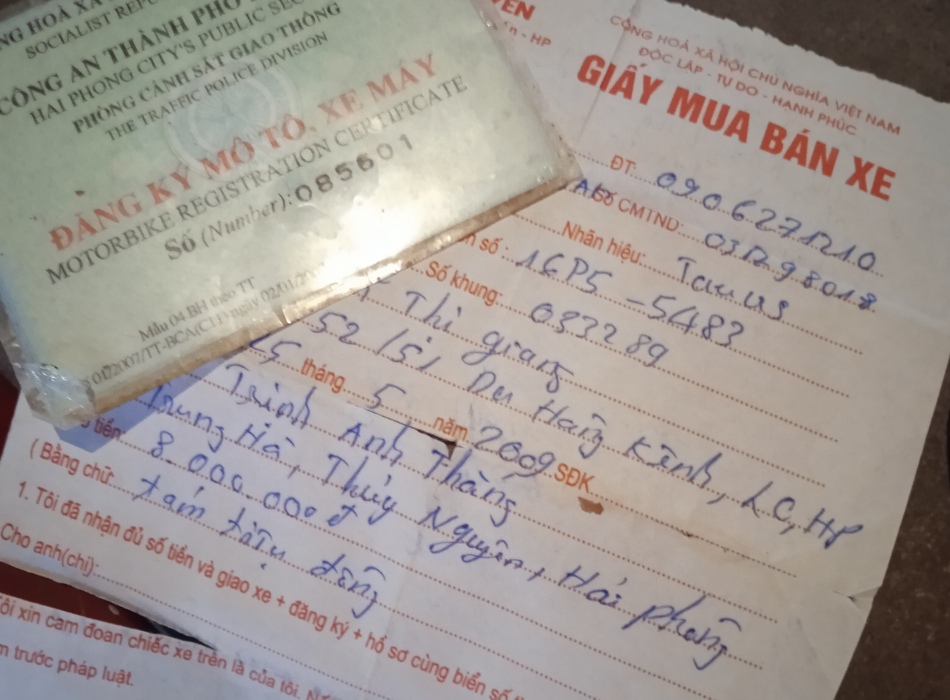 SOCIALIST REPU
CÔNG AN THÀNH PHỐ
HAI PHONG CITY'S PUBLIC SEC
PHÒNG CẢNH SÁT GIAO THÔNG
THE TRAFFIC POLICE DIVISION
ĐĂNG KÝ MÔ TÔ, XE MÁY
MOTORBIKE REGISTRATION CERTIFICATE
Số (Number): 085601
Mẫu 04 BH theo TT
ngày 02/01/20
- HP
CỘNG HOÀ XÃ HỘI CHỦ NGHĨA VIỆT NAM
ĐỘC LẬP - TỰ DO - HẠNH PHÚC
GIẤY MUA BÁN XE
ĐT:
Số CMTND:
Nhãn hiệu: Taurus
số: 16P5 - 5483
Số khung: 033289
Thị giang
52 /51 Dư Hàng Kênh, LC, HP
tháng 5 năm 2009 SĐK
Trịnh Anh Thắng
Trung Hà, Thủy Nguyên, Hải phòng
tiền 8.000.000đ
(Bằng chữ tám triệu đồng
1. Tôi đã nhận đủ số tiền và giao xe + đăng ký + hồ sơ cùng biển số
Cho anh(chị):
ôi xin cam đoan chiếc xe trên là của tôi.
trước pháp luật.